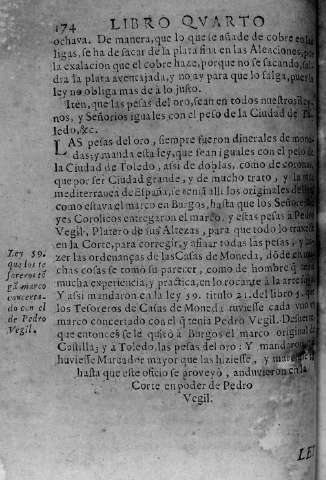 174 LIBRO QVARTO
ochava. De manera, que lo que se añade de cobre en las
ligas, se ha de sacar de la plata fina en las Aleaciones, por
la exalacion que el cobre haze, porque no se sacando, sal
dra la plata aventajada, y no ay para que lo salga, pues la
ley no obliga mas de à lo justo.
Iten, que las pesas del oro, sean en todos nuestros Rey-
nos, y Señorios iguales con el peso de la Ciudad de To
ledo, &c.
LAS pesas del oro, siempre fueron dinerales de mone
das; y manda esta ley, que sean iguales con el peso de
la Ciudad de Toledo, assi de doblas, como de coronas,
que por ser Ciudad grande, y de mucho trato, y la mas
mediterranea de España, se tenia alli los originales dellas,
como estava el marco en Burgos, hasta que los Señores Re
yes Corolicos entregaron el marco, y estas pesas à Pedro
Vegil, Platero de sus Altezas, para que todo lo traxesse
en la Corte, para corregir, y afinar todas las pesas, y ha
zer las ordenanças de las Casas de Moneda, dõde en mu
chas cosas se tomò su parecer, como de hombre q̃ tenia
mucha experiencia, y practica, en lo tocante à la arte
Y assi mandaron en la ley 59. titulo 21. del libro 5. que
los Tesoreros de Casas de Moneda tuviesse cada vno vn
marco concertado con el q̃ tenia Pedro Vegil. De suerte,
que entonces se le quitò à Burgos el marco original de
Castilla; y à Toledo, las pesas del oro: Y mandaron
huviesse Marcador mayor que las hiziesse, y
hasta que este oficio se proveyò, anduvieron en la
Corte en poder de Pedro
Vegil.
Ley 59.
que los te
soreros tẽ
gã marco
concerta-
do con el
de Pedro
Vegil.
LEY